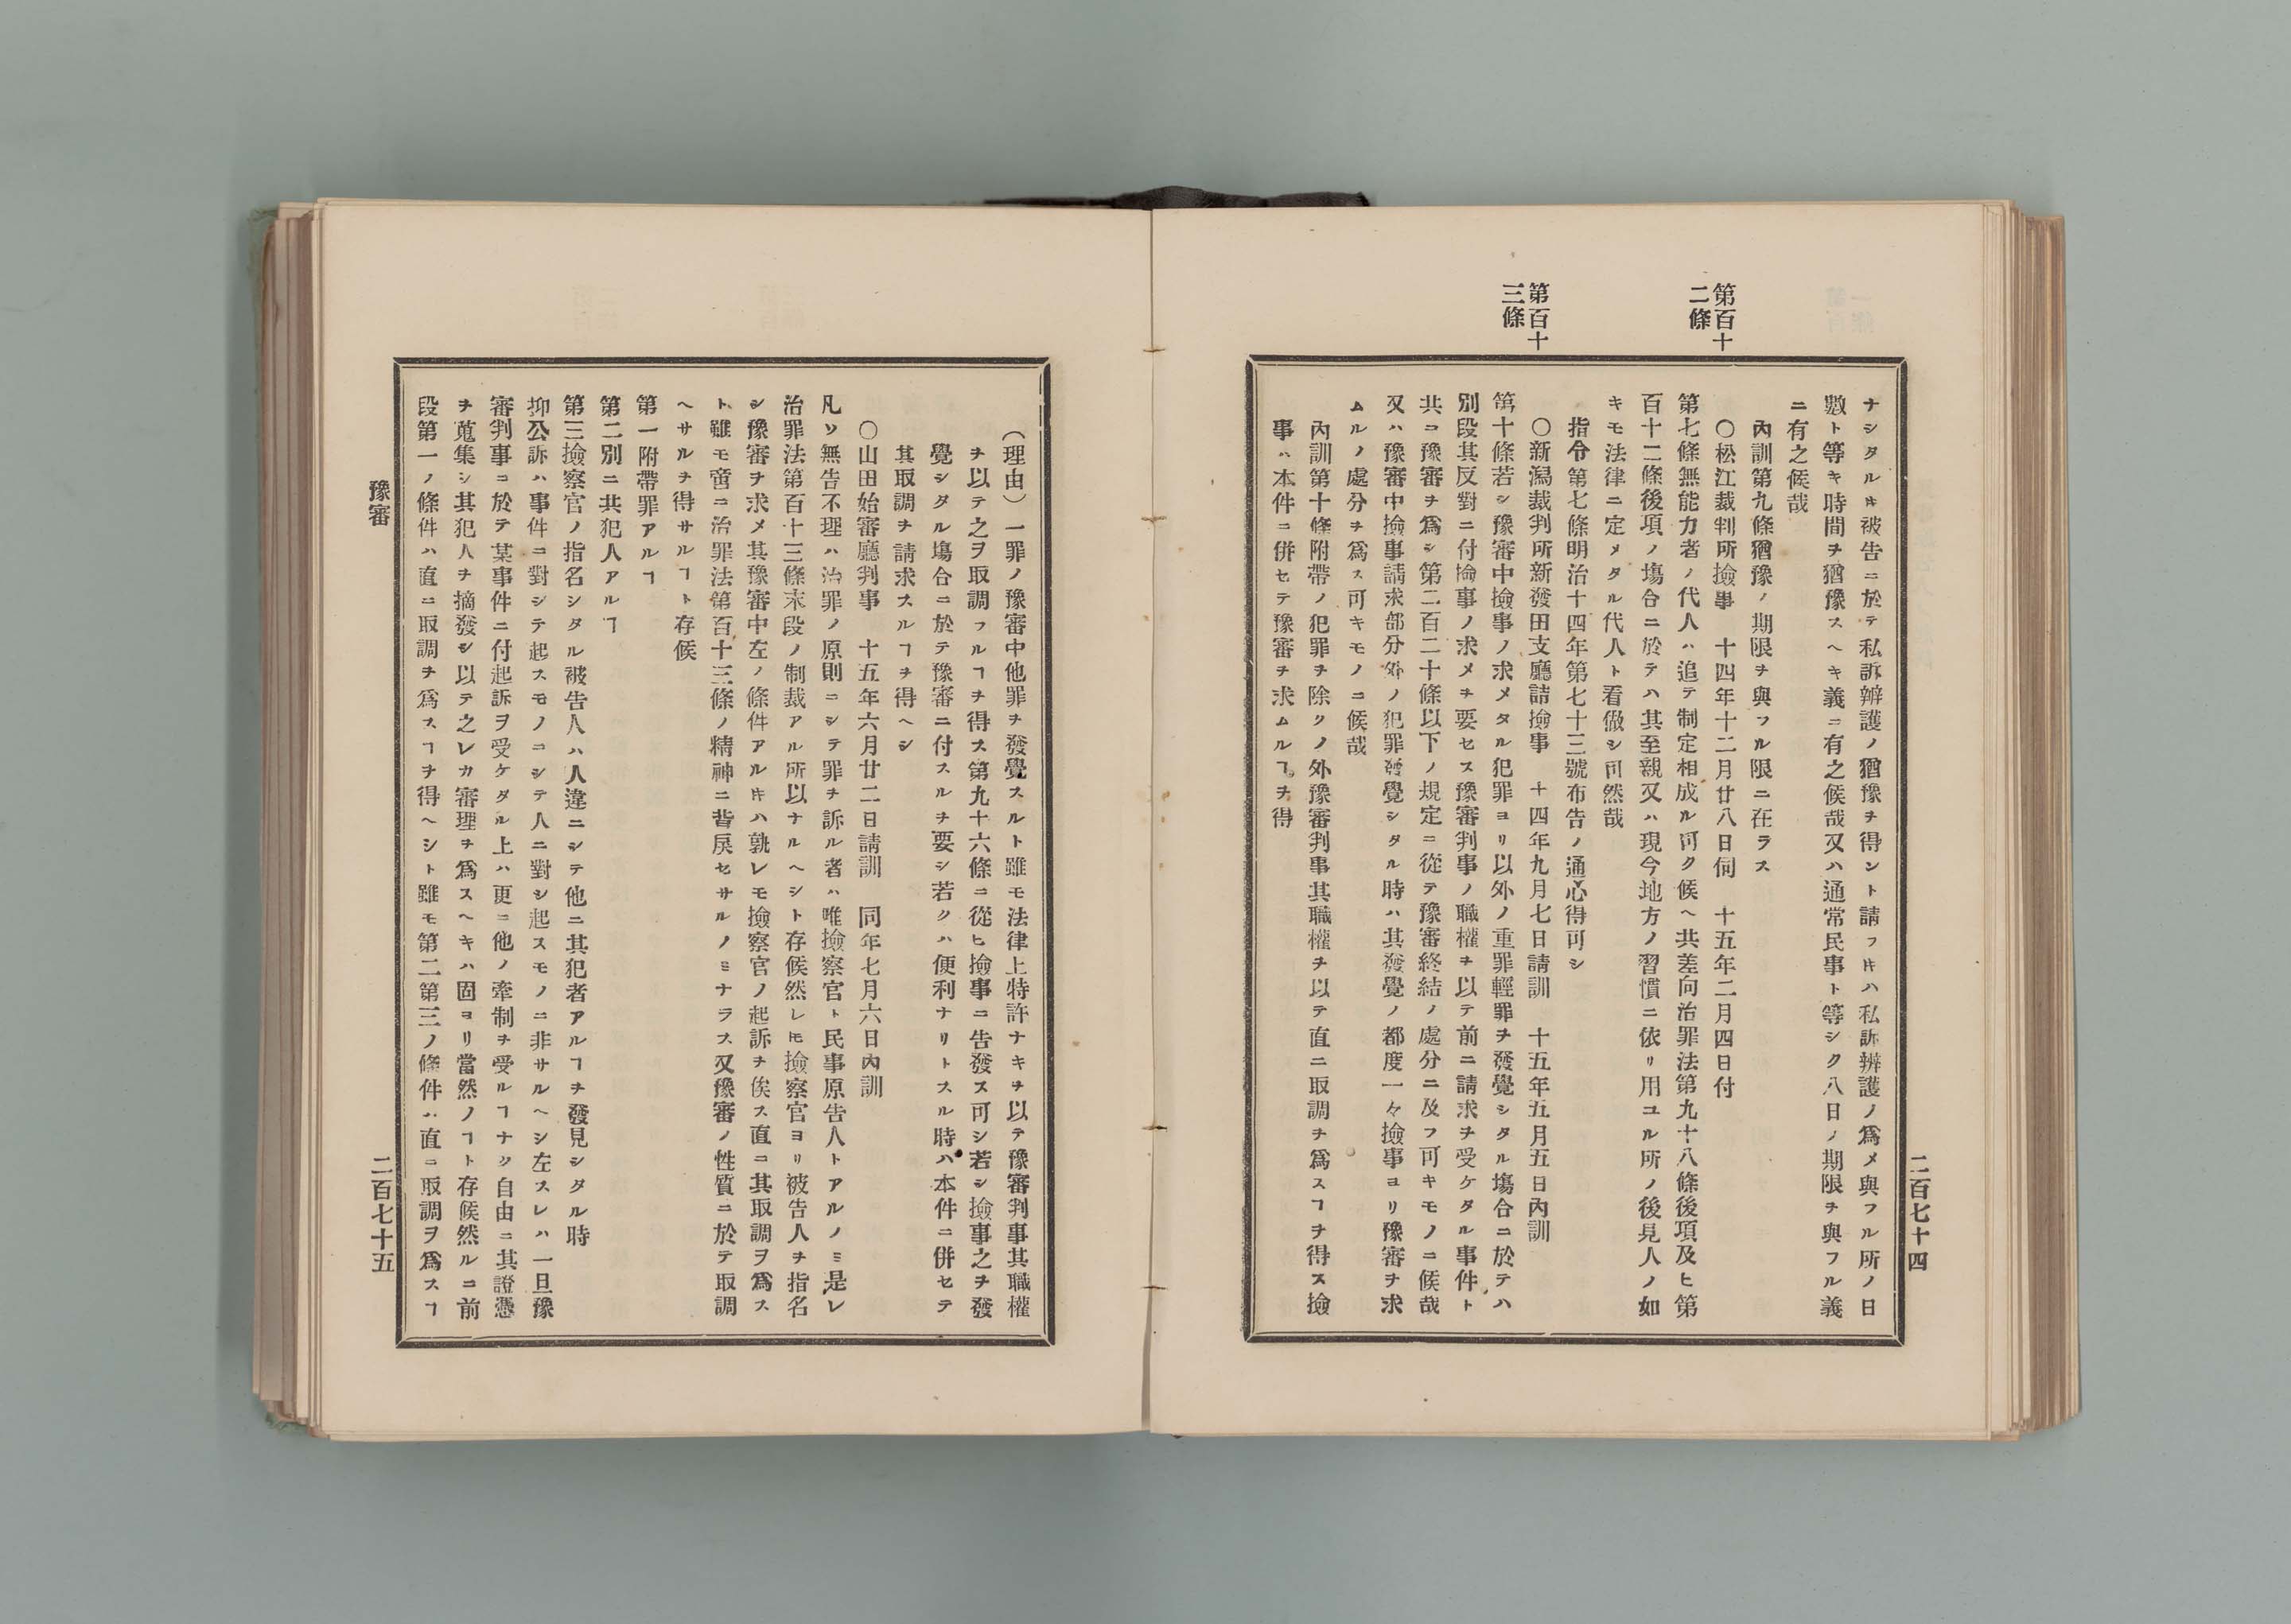 二百七十四
ナシタルキ被告ニ於テ私訴辨護ノ猶豫ヲ得ント請フキハ私訴辨護ノ爲メ與フル所ノ日
數ト等キ時間ヲ猶豫スヘキ義ニ有之候哉又ハ通常民事ト等シク八日ノ期限ヲ與フル義
ニ有之候哉
內訓第九條猶豫ノ期限ヲ與フル限ニ在ラス
第百十
二條
〇松江裁判所撿事　十四年十二月廿八日伺　十五年二月四日付
第七條無能力者ノ代人ハ追テ制定相成ル可ク候ヘ共差向治罪法第九十八條後項及ヒ第
百十二條後項ノ塲合ニ於テハ其至親又ハ現今地方ノ習慣ニ依リ用ユル所ノ後見人ノ如
キモ法律ニ定メタル代人ト看做シ可然哉
指令第七條明治十四年第七十三號布告ノ通心得可シ
第百十
三條
〇新潟裁判所新發田支廳詰撿事　十四年九月七日請訓　十五年五月五日內訓
第十條若シ豫審中撿事ノ求メタル犯罪ヨリ以外ノ重罪輕罪ヲ發覺シタル塲合ニ於テハ
別段其反對ニ付撿事ノ求メヲ要セス豫審判事ノ職權ヲ以テ前ニ請求ヲ受ケタル事件ト
共ニ豫審ヲ爲シ第二百二十條以下ノ規定ニ從テ豫審終結ノ處分ニ及フ可キモノニ候哉
又ハ豫審中撿事請求部分外ノ犯罪發覺シタル時ハ其發覺ノ都度一々撿事ヨリ豫審ヲ求
ムルノ處分ヲ爲ス可キモノニ候哉
內訓第十條附帶ノ犯罪ヲ除クノ外豫審判事其職權ヲ以テ直ニ取調ヲ爲スヿヲ得ス撿
事ハ本件ニ併セテ豫審ヲ求ムルヿヲ得
（理由）一罪ノ豫審中他罪ヲ發覺スルト雖モ法律上特許ナキヲ以テ豫審判事其職權
ヲ以テ之ヲ取調フルヿヲ得ス第九十六條ニ從ヒ撿事ニ告發ス可シ若シ撿事之ヲ發
覺シタル塲合ニ於テ豫審ニ付スルヲ要シ若クハ便利ナリトスル時ハ本件ニ併セテ
其取調ヲ請求スルヿヲ得ヘシ
〇山田始審廳判事　十五年六月廿二日請訓　同年七月六日內訓
凡ソ無告不理ハ治罪ノ原則ニシテ罪ヲ訴ル者ハ唯撿察官ト民事原告人トアルノミ是レ
治罪法第百十三條末段ノ制裁アル所以ナルヘシト存候然レㇳモ撿察官ヨリ被告人ヲ指名
シ豫審ヲ求メ其豫審中左ノ條件アルキハ孰レモ撿察官ノ起訴ヲ俟ス直ニ其取調ヲ爲ス
ト雖モ啻ニ治罪法第百十三條ノ精神ニ背戾セサルノミナラス又豫審ノ性質ニ於テ取調
ヘサルヲ得サルヿト存候
第一附帶罪アルヿ
第二別ニ共犯人アルヿ
第三撿察官ノ指名シタル被告人ハ人違ニシテ他ニ其犯者アルヿヲ發見シタル時
抑公訴ハ事件ニ對シテ起スモノニシテ人ニ對シ起スモノニ非サルヘシ左スレハ一旦豫
審判事ニ於テ某事件ニ付起訴ヲ受ケタル上ハ更ニ他ノ牽制ヲ受ルヿナク自由ニ其證憑
ヲ蒐集シ其犯人ヲ摘發シ以テ之レカ審理ヲ爲スヘキハ固ヨリ當然ノヿト存候然ルニ前
段第一ノ條件ハ直ニ取調ヲ爲スヿヲ得ヘシト雖モ第二第三ノ條件ハ直ニ取調ヲ爲スヿ
豫審
二百七十五